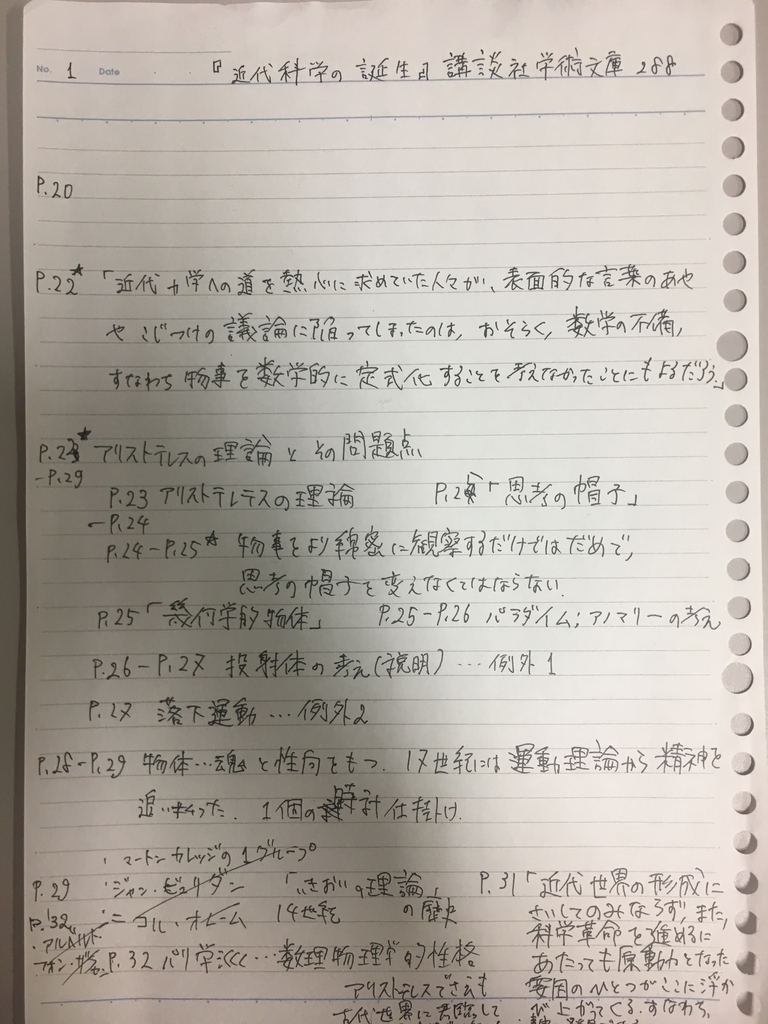 No. 1 Date 『近代科学の誕生』講談社学術文庫 288
P.20
P.22* 「近代力学への道を熱心に求めていた人々が、表面的な言葉のあや
や こじつけの議論に陥ってしまったのは、おそらく、数学の不備、
すなわち 物事を数学的に定式化することを考えなかったことにもよるだろう。」
P.23* アリストテレスの理論とその問題点
-P.29
P.23 アリストテレテスの理論 「思考の帽子」
-P.24
P.24-P.25* 物事をより綿密に観察するだけではだめで、
思考の帽子を変えなくてはならない.
P.25「幾何学的物体」 P.25-P.26 パラダイム;アノマリーの考え
P.26-P.27 投射体の考え(説明)…例外1
P.27 落下運動…例外2
P.28-P.29 物体…魂と性向をもつ. 17世紀には運動理論から精神を
追いはらった. 1個の時計仕掛け.
・マートンカレッジの1グループ
P.29 ・ジャン・ビュリダン 「いきおいの理論」 P.31「近代世界の形成に
P.32 ・ニコル・オレーム 14世紀 の歴史 さいしてのみならず,また,
・アルベルト・ 科学革命を進めるに
フォン・ P.32 パリ学派…数理物理学的性格 あたっても原動力となった
アリストテレスでさえも 要因のひとつがここに浮か
古代世界に君臨して び上がってくる.すなわち,